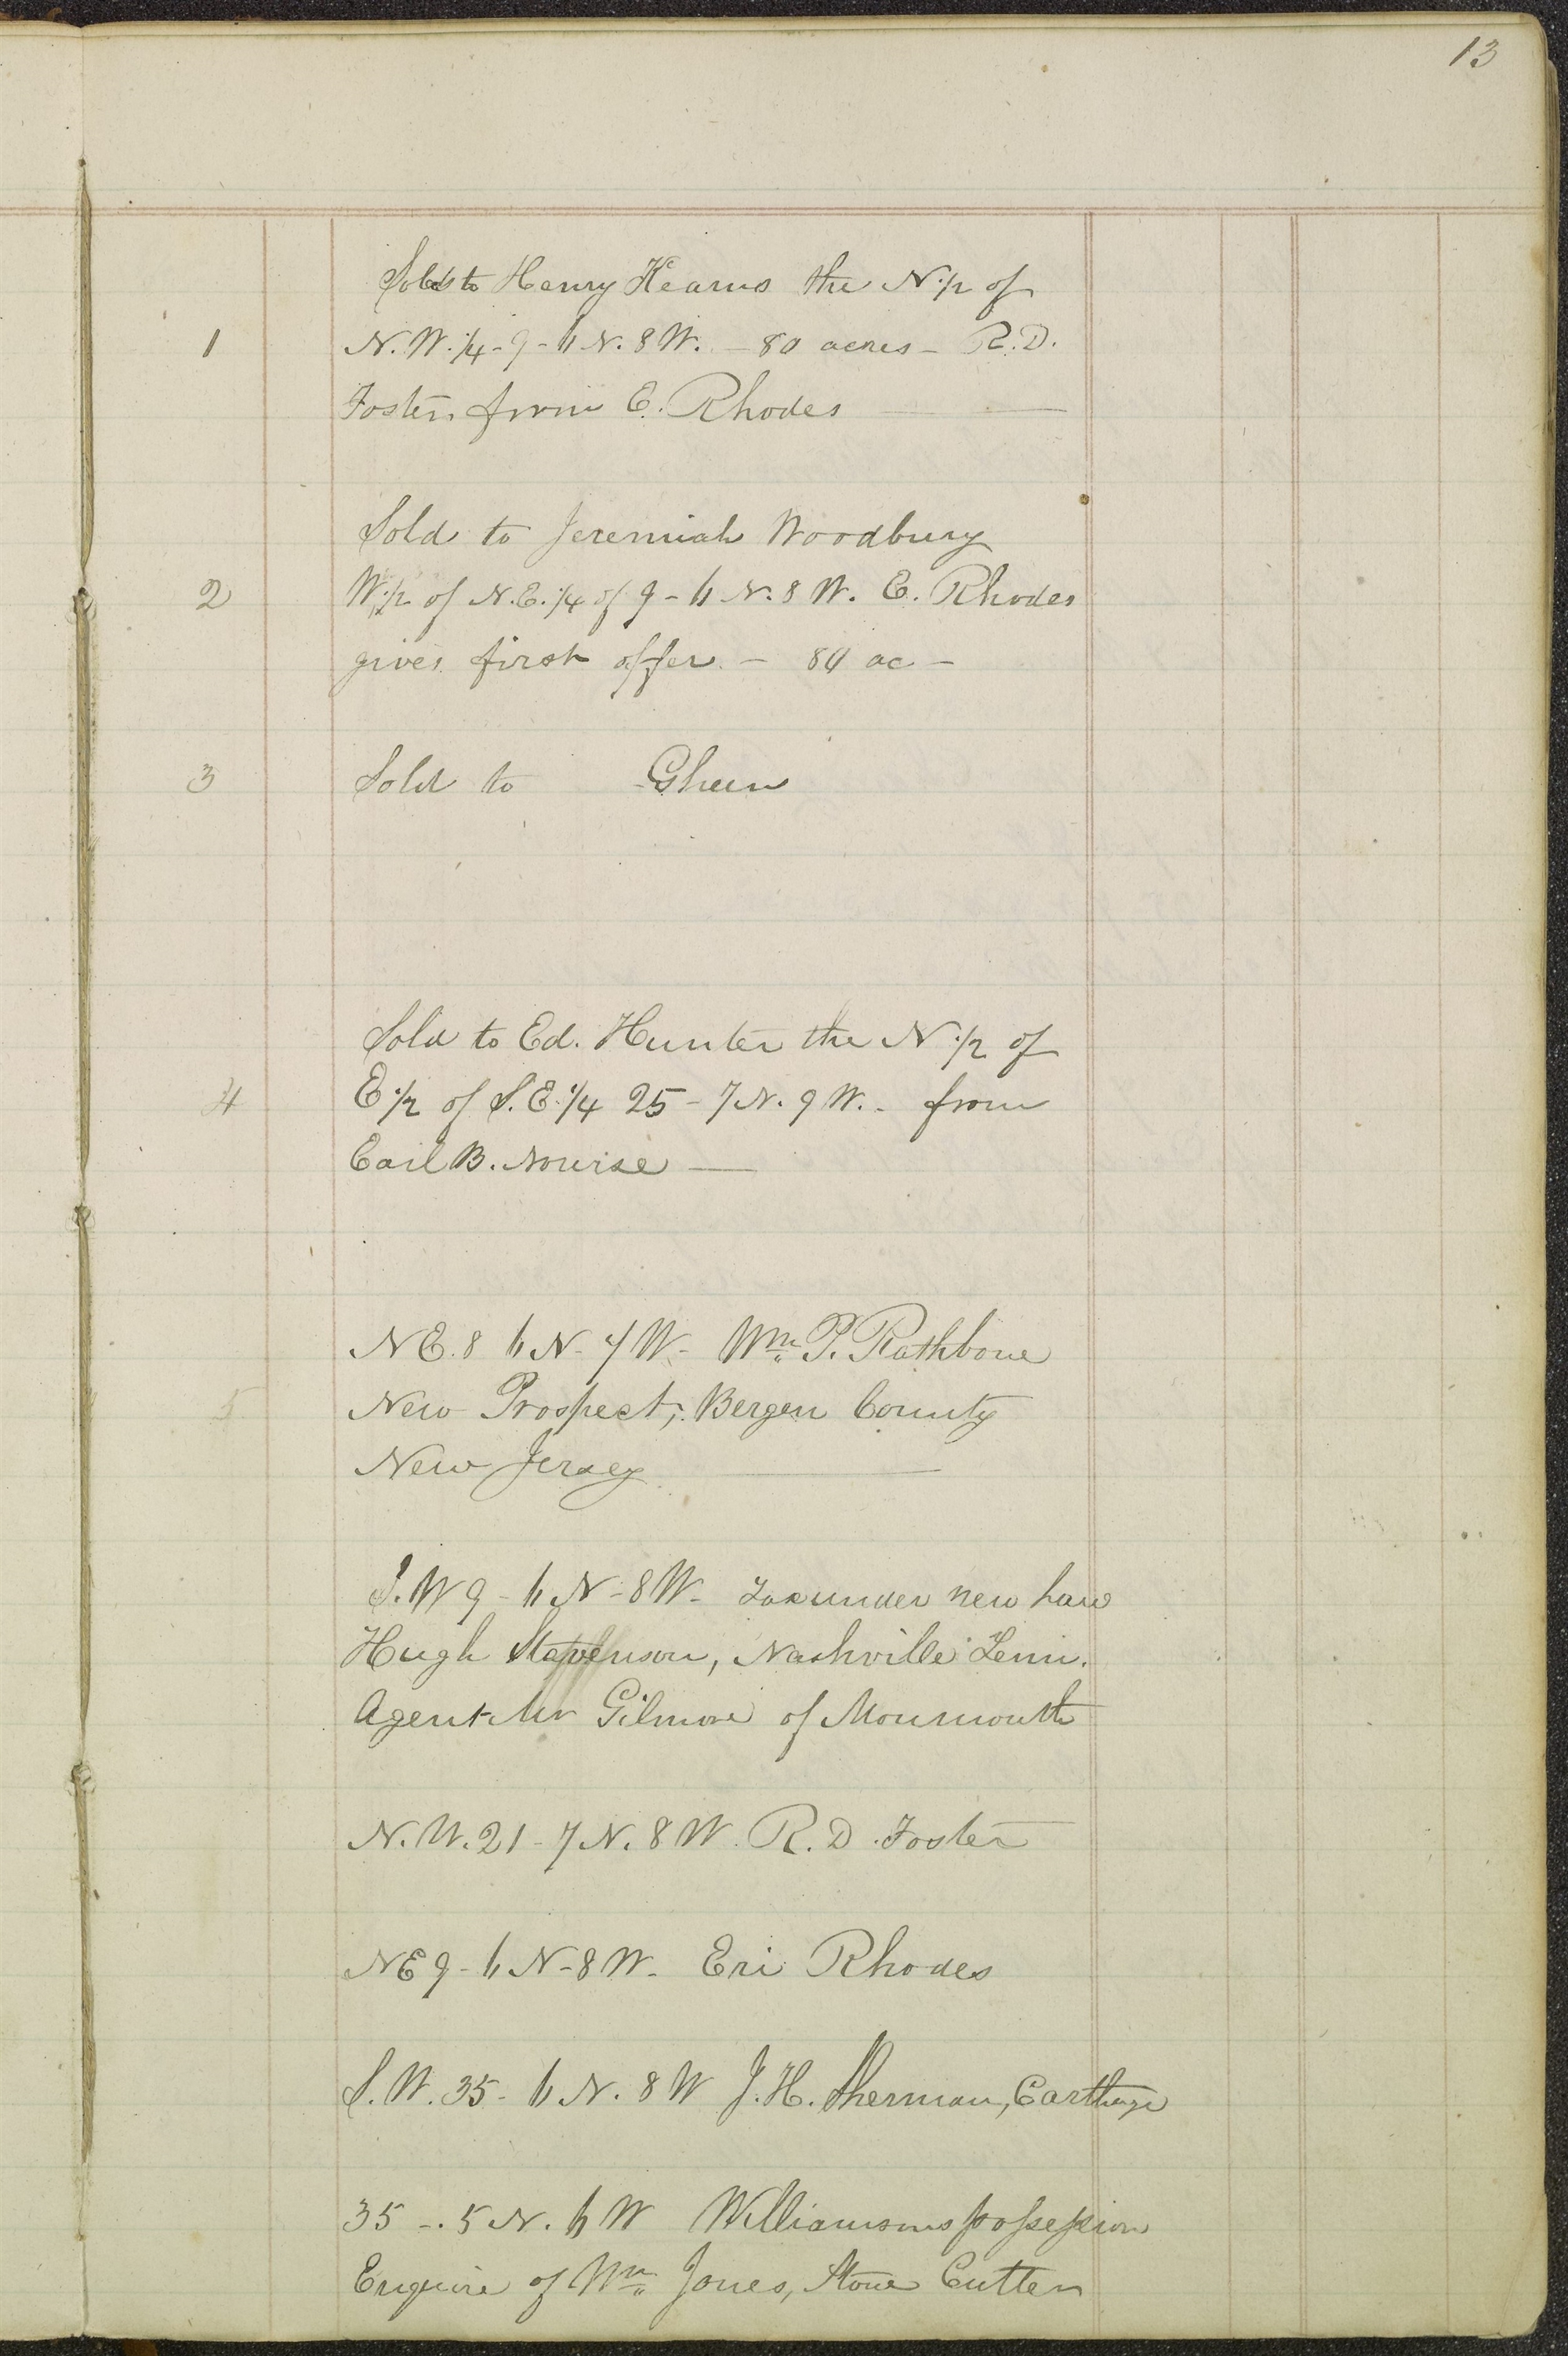 13
Sold to Henry Kearns the N. 1/2 of
1 N.W. 1/4 - 9 - 6 N. 8 W. - 80 acres - R.D.
Foster from E. Rhodes
Sold to Jeremiah Woodbury
2 W. 1/2 of N.E. 1/4 of 9 - 6 N. 8 W. E. Rhodes
gives first offer. - 80 ac -
3 Sold to Gheen
Sold to Ed. Hunter the N. 1/2 of
4 E 1/2 of S.E. 1/4 25 - 7 N. 9 W. - from
Earl B. Nourse
N E. 8 6 N - 7 W - Wm P. Rathbone
5 New Prospect, Bergen County
New Jersey
S. W 9 - 6 N - 8 W - Tax under new law
Hugh Stevenson, Nashville Tenn.
Agent Mr Gilmore of Monmouth
N. W. 21 - 7 N. 8 W. R. D. Foster
N E 9 - 6 N - 8 W - Eri Rhodes
S. W. 35 - 6 N. 8 W J. H. Sherman, Carthage
35 - 5 N. 6 W Williamsons possession
Enquire of Wm Jones, Stone Cutter